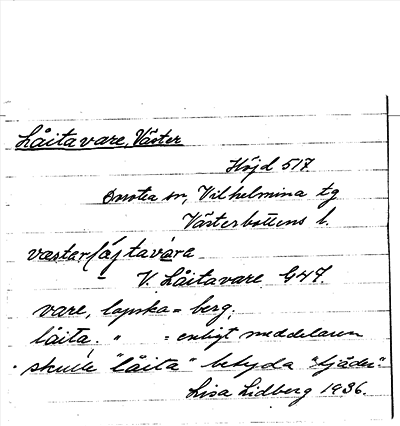 Låitavare, Väster
Höjd 517.
Dorotea sn, Vilhelmina tg
Västerbottens l.
væstarlåjtavára
V. Låitavare G47.
vare, lapska = berg;
låita. " = enligt meddelaren
skulle "låita" betyda "tjäder".
Lisa Lidberg 1936.